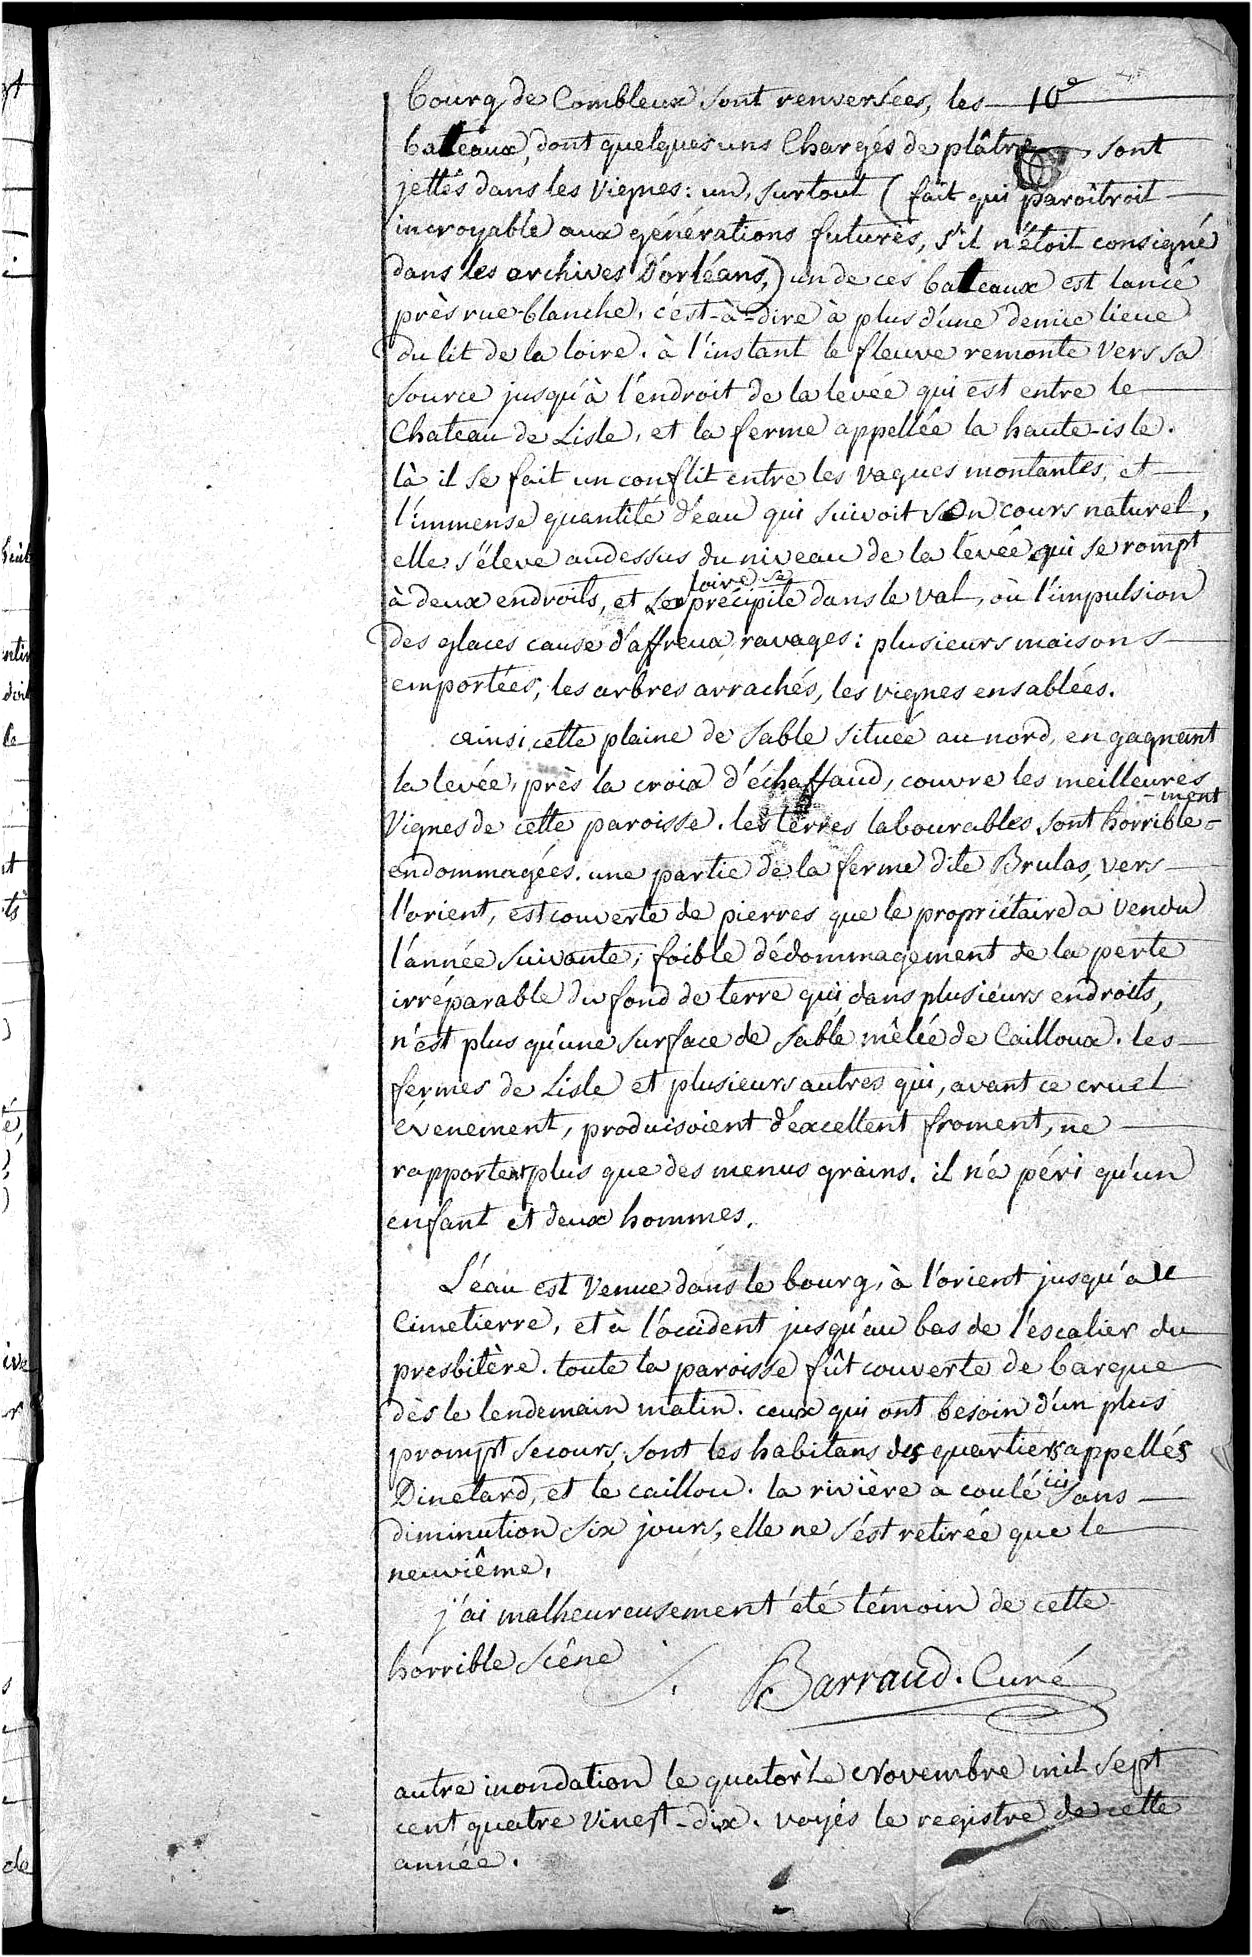 bourg de Combleux sont renversées, les 10e
bateaux, dont quelques uns Chargés de plâtre sont
jettés dans les vignes: un, surtout (fait qui paroîtroit
incroyable aux générations futures, s'il n'étoit consigné
dans les archives D'orléans,) un de ces bateaux est lancé
près rue-blanche, c'est-à-dire à plus d'une demie lieue
du lit de la loire. à l'instant le fleuve remonte vers sa
source jusqu'à l'endroit de la levée qui est entre le
Chateau de Lisle, et la ferme appellée la haute-isle.
là il se fait un conflit entre les vagues montantes, et
l'immense quantité d'eau qui suivoit son cours naturel,
elle s'éleve audessus du niveau de la levée qui se rompt
loire se
à deux endroits, et précipite dans le val, où l'impulsion
des glaces cause d'affreux ravages: plusieurs maisons
emportées, les arbres arrachés, les vignes ensablées.
ainsi cette plaine de sable située au nord, en gagnant
la levée, près la croix d'échaffaud, couvre les meilleures
-ment
Vignes de cette paroisse. les terres labourables sont horrible=
endommagées. une partie de la ferme dite Brulas, vers
l'orient, est couverte de pierres que le propriétaire a vendu
l'année suivante; foible dédommagement de la perte
irréparable du fond de terre qui, dans plusieurs endroits,
n'est plus qu'une surface de sable mêlée de Cailloux. les
fermes de Lisle et plusieurs autres qui, avant ce cruel
évenement, produisoient d'éxcellent froment, ne
rapportent plus que des menus grains. il n'a péri qu'un
enfant et deux hommes.
L'éau est venue dans le bourg, à l'orient jusqu'a le
Cimetierre, et à l'occident jusqu'au bas de l'escalier du
presbitère. toute la paroisse fût couverte de barque
dès le lendemain matin. ceux qui ont besoin d'un plus
prompt secours, sont les habitans des quartiers appellés
Dinetard, et le caillou. la rivière a coulé ici sans
diminution six jours, elle ne s'ést retirée que le
neuvième.
j'ai malheureusement été témoin de cette
horrible scêne.
Barraud. Curé
autre inondation le quatorze Novembre mil sept
cent quatre vingt-dix. voyés le registre de cette
année.